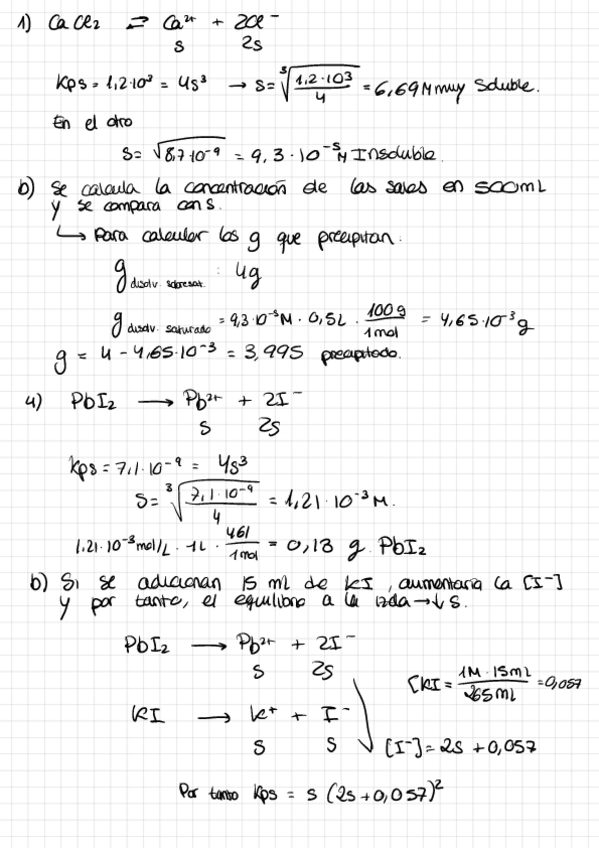 1) CaCl₂ ⇌ Ca²⁺ + 2Cl⁻
s 2s
Kps = 1,2·10³ = 4s³ → s = ∛(1,2·10³/4) = 6,69M muy soluble.
En el otro
s = √8,7·10⁻⁹ = 9,3·10⁻⁵ M Insoluble.
b) Se calcula la concentración de las sales en 500mL
y se compara con s.
↳ Para calcular los g que precipitan:
g disolv. sobresat. : 4g
g disolv. saturado = 9,3·10⁻⁵M · 0,5L · 100g/1mol = 4,65·10⁻³g
g = 4 - 4,65·10⁻³ = 3,995 precipitado.
4) PbI₂ → Pb²⁺ + 2I⁻
s 2s
Kps = 7,1·10⁻⁹ = 4s³
s = ∛(7,1·10⁻⁹/4) = 1,21·10⁻³ M.
1,21·10⁻³ mol/L · 1L · 461/1mol = 0,13 g PbI₂
b) Si se adicionan 15 ml de KI, aumentaría la [I⁻]
y por tanto, el equilibrio a la izda → ↓ s.
PbI₂ → Pb²⁺ + 2I⁻
s 2s
[KI = 1M · 15mL/265mL = 0,057
KI → K⁺ + I⁻
s s [I⁻] = 2s + 0,057
Por tanto Kps = s (2s + 0,057)²